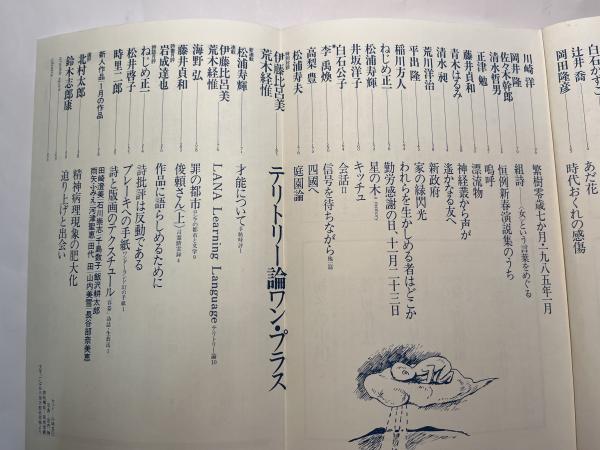 白石かずこ
辻井 喬
岡田隆彦
川崎 洋
岡井 隆
佐々木幹郎
清水哲男
正津 勉
藤井貞和
青木はるみ
清水 昶
荒川洋治
平出 隆
稲川方人
ねじめ正一
松浦寿輝
井坂洋子
白石公子
李 禹煥
高梨 豊
松浦寿夫
あだ花
時代おくれの感傷
繁樹零歳七か月・一九八五年一月
組詩——〈女〉という言葉をめぐる
恒例新春演説集のうち
嗚呼
漂流物
神経叢から声が
遙かなる友へ
新政府
家の緑閃光
われらを生かしめる者はどこか
勤労感謝の日、十一月二十三日
星の木
キッチュ
会話Ⅱ
信号を待ちながら
四國へ
庭園論
伊藤比呂美
荒木経惟
テリトリー論ワン・プラス
松浦寿輝
才能について
伊藤比呂美
荒木経惟
LANA Learning Language テリトリー論10
海野 弘
罪の都市
藤井貞和
俊頼さん〈上〉
岩成達也
作品に語らしめるために
ねじめ正一
詩批評は反動である
松井啓子
ブレーキへの手紙
時里二郎
詩と版画のテクスチュール
新人作品・1月の作品
田崎澄美 石川善志 千島数子 飯沢耕太郎
雨矢ふみえ 河津聖恵 田代 田 山内美雪 長谷部奈美恵
北村太郎
精神病理現象の肥大化
鈴木志郎康
迫り上げと出会い